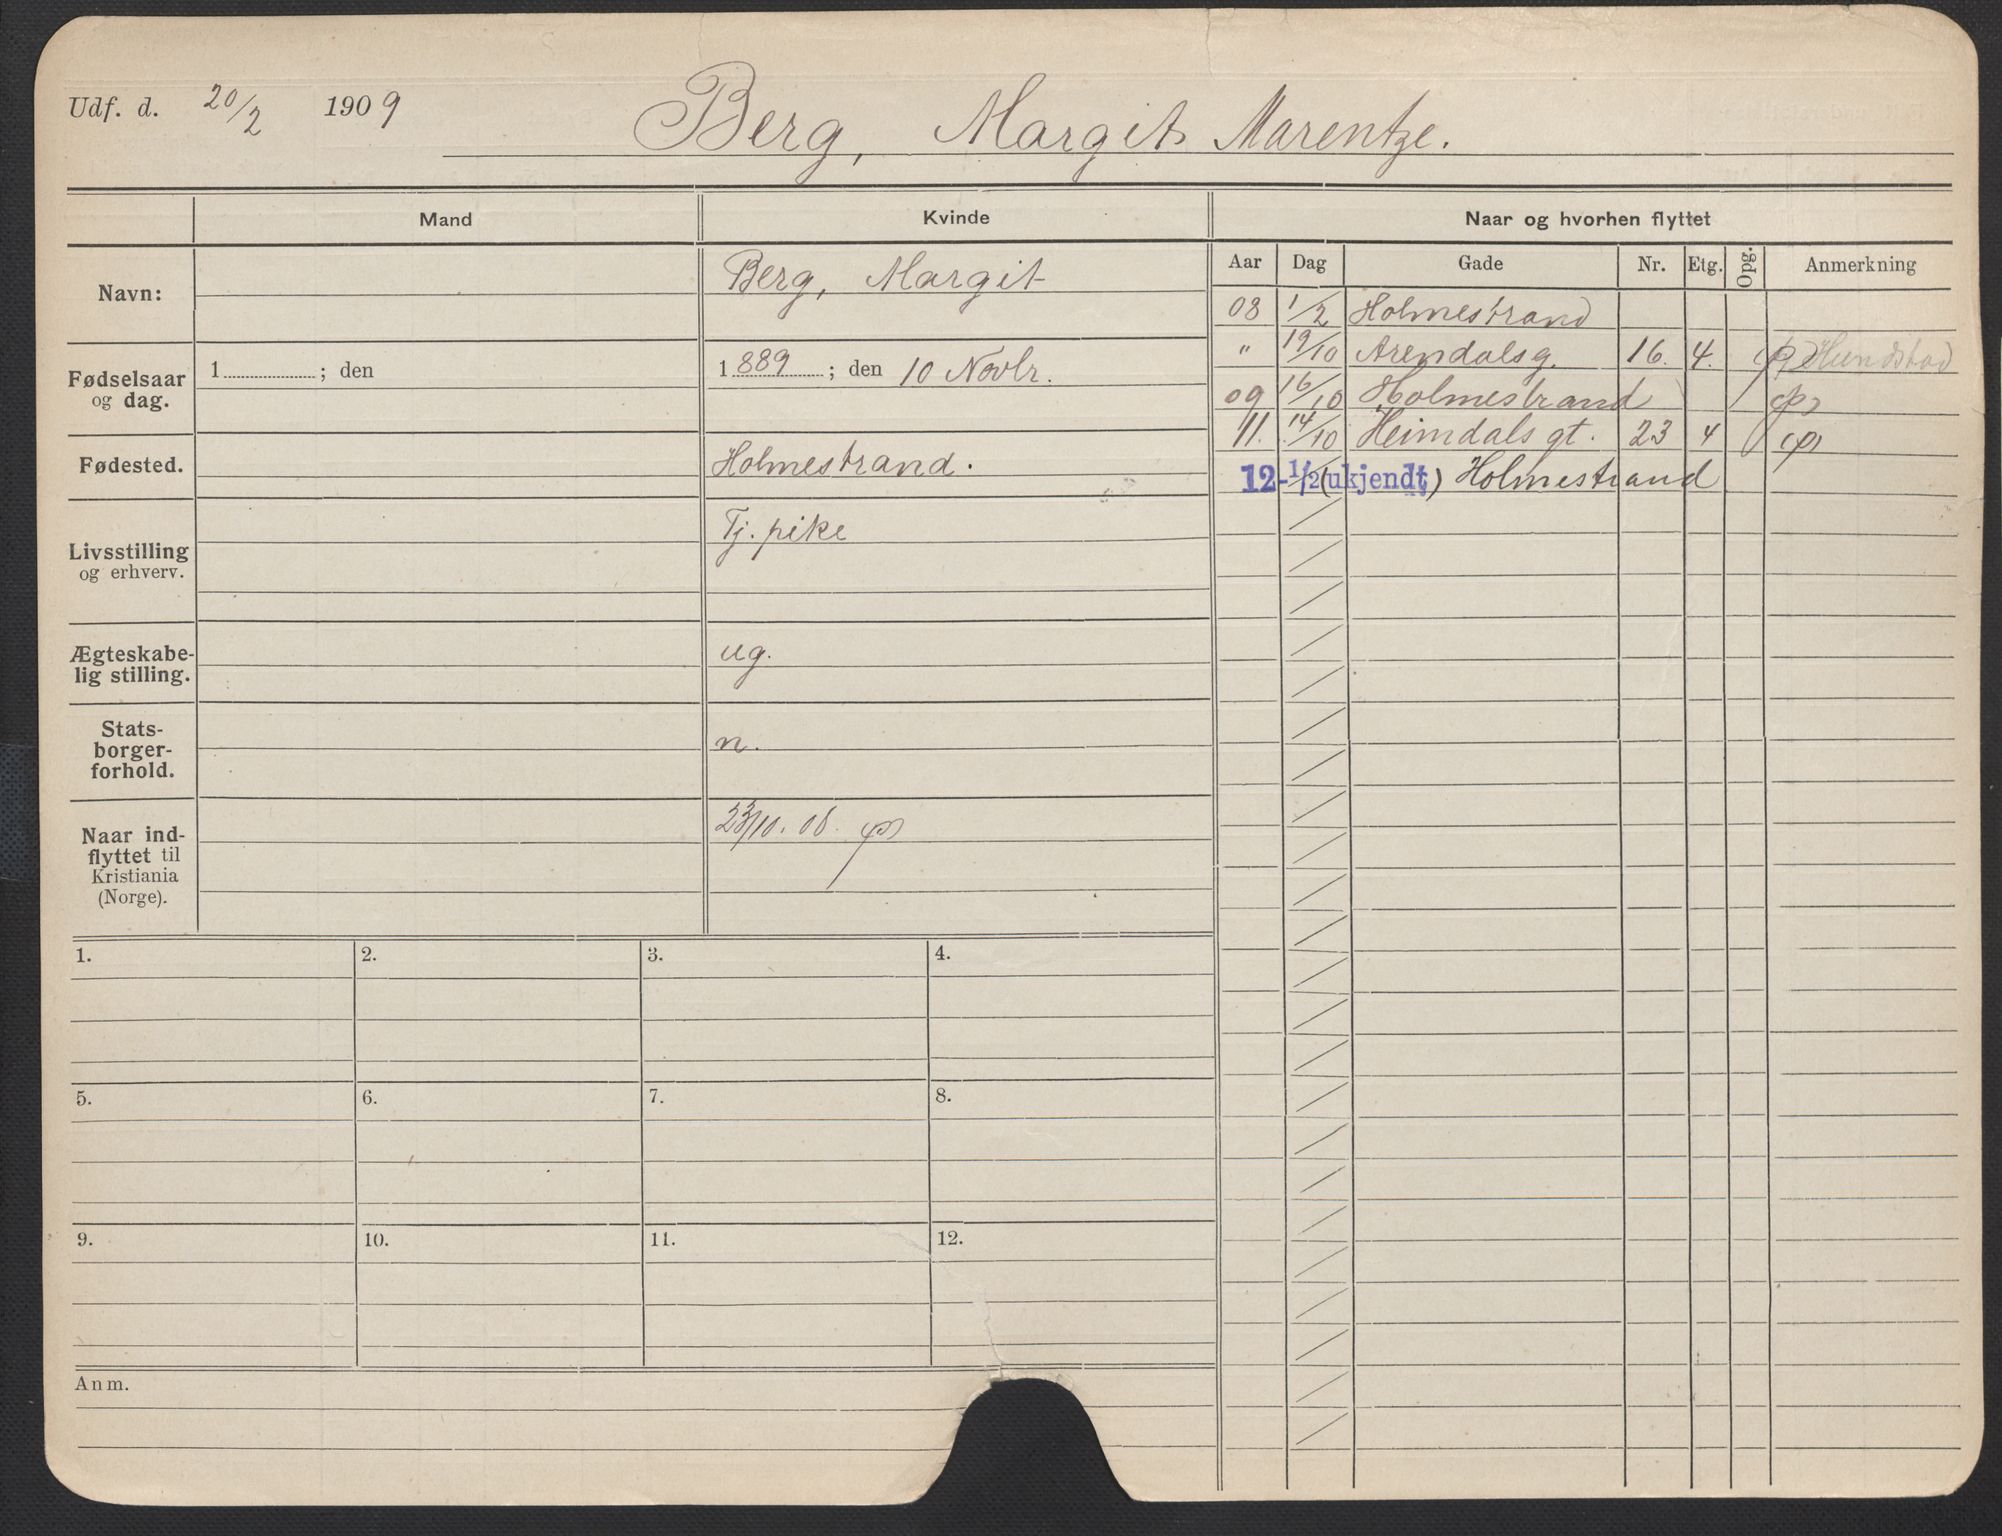 Udf. d. 20/2 1909 Berg, Margit Marentze.
Mand Kvinde Naar og hvorhen flyttet
Aar Dag Gade Nr. Etg. Opg. Anmerkning
Navn: Berg, Margit
Fødselsaar og dag. 1 ; den 1889 ; den 10 Novbr.
Fødested. Holmestrand.
Livsstilling og erhverv. Tj. pike
Ægteskabe-
lig stilling. ug.
Stats-
borger-
forhold. n.
Naar ind-
flyttet til
Kristiania
(Norge). 23/10. 08.
08 1/2 Holmestrand
" 19/10 Arendalsg. 16. 4.
09 16/10 Holmestrand
11. 14/10 Heimdals gt. 23 4
12 - 1/2 (ukjendt) Holmestrand
1. 2. 3. 4.
5. 6. 7. 8.
9. 10. 11. 12.
Anm.